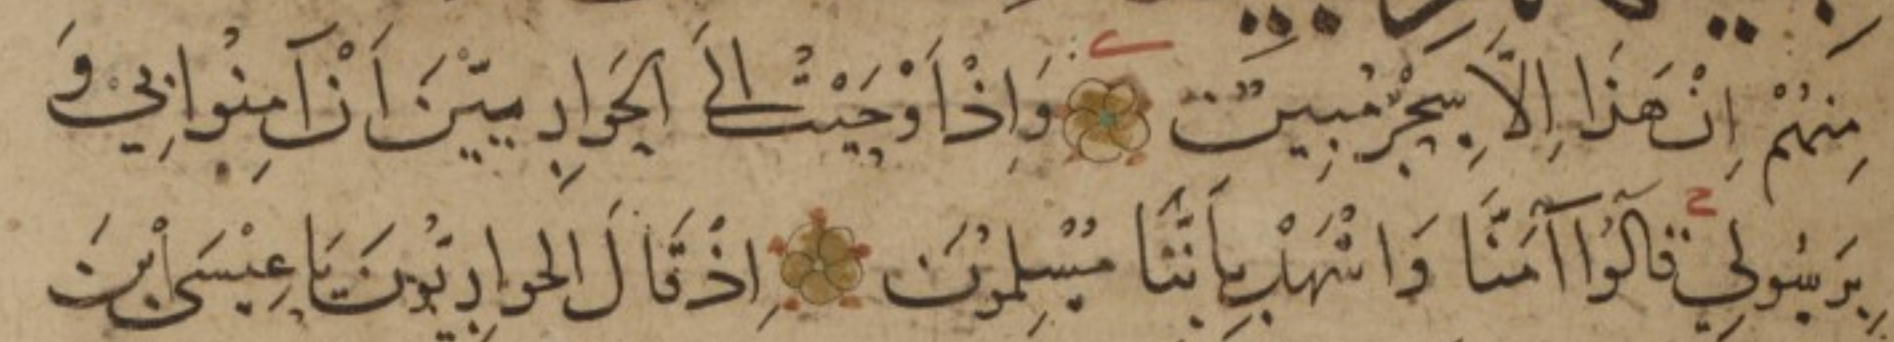 مِنْهُمْ اِنْ هَذَا اِلَّا سِحْرٌ مُبِينٌ وَاِذْ اَوْحَيْتُ اِلَى الْحَوَارِيّٖنَ اَنْ آمِنُوا بِي وَ
بِرَسُولِي قَالُوا آمَنَّا وَاشْهَدْ بِاَنَّنَا مُسْلِمُونَ اِذْ قَالَ الْحَوَارِيُّونَ يَا عِيْسَى ابْنَ